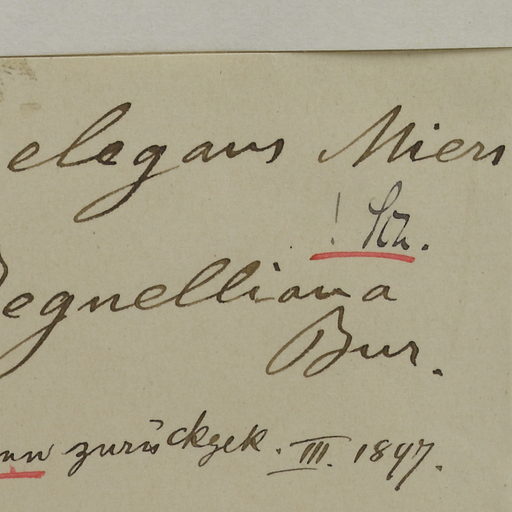 elegans Miers
! Sch.
Regnelliana
Bur.
zurückgek. III. 1897.